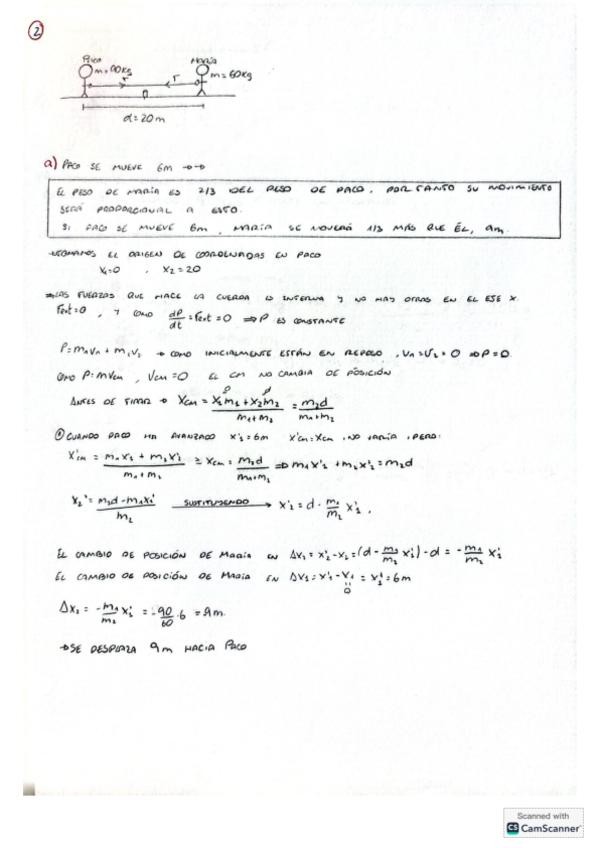 2
Paco
María
m=90kg
m=60kg
r
r
d=20m
a) PACO SE MUEVE 6m →→
EL PESO DE MARÍA ES 2/3 DEL PESO DE PACO, POR TANTO SU MOVIMIENTO
SERÁ PROPORCIONAL A ESTO.
SI PACO SE MUEVE 6m, MARÍA SE MOVERÁ 1/3 MÁS QUE ÉL, 9m.
→TOMAMOS EL ORIGEN DE COORDENADAS EN PACO
X₁=0 , X₂=20
⇒LAS FUERZAS QUE HACE LA CUERDA ES INTERNA Y NO HAY OTRAS EN EL EJE X.
Fext=0, Y COMO dP/dt = Fext = 0 ⇒ P ES CONSTANTE
P=m₁V₁+m₂V₂ → COMO INICIALMENTE ESTÁN EN REPOSO, V₁=V₂=0 ⇒P=0.
COMO P=MVcm, Vcm=0 EL CM NO CAMBIA DE POSICIÓN
ANTES DE TIRAR → Xcm = (X₁m₁+X₂m₂)/(m₁+m₂) = m₂d/(m₁+m₂)
CUANDO PACO HA AVANZADO X'₁=6m X'cm=Xcm, NO VARÍA, PERO:
X'cm = (m₁X'₁+m₂X'₂)/(m₁+m₂) = Xcm = m₂d/(m₁+m₂) ⇒ m₁X'₁+m₂X'₂=m₂d
X₂'= (m₂d-m₁X₁')/m₂ SUSTITUYENDO → X'₂=d-m₁/m₂ X'₁.
EL CAMBIO DE POSICIÓN DE MARÍA ΔX₂=X'₂-X₂=(d-m₁/m₂ X'₁)-d=-m₁/m₂ X'₁
EL CAMBIO DE POSICIÓN DE MARÍA ΔX₁=X'₁-X₁=X'₁=6m
0
ΔX₂=-m₁/m₂ X'₁=-90/60·6=9m.
→SE DESPLAZA 9m HACIA PACO
Scanned with
CS CamScanner